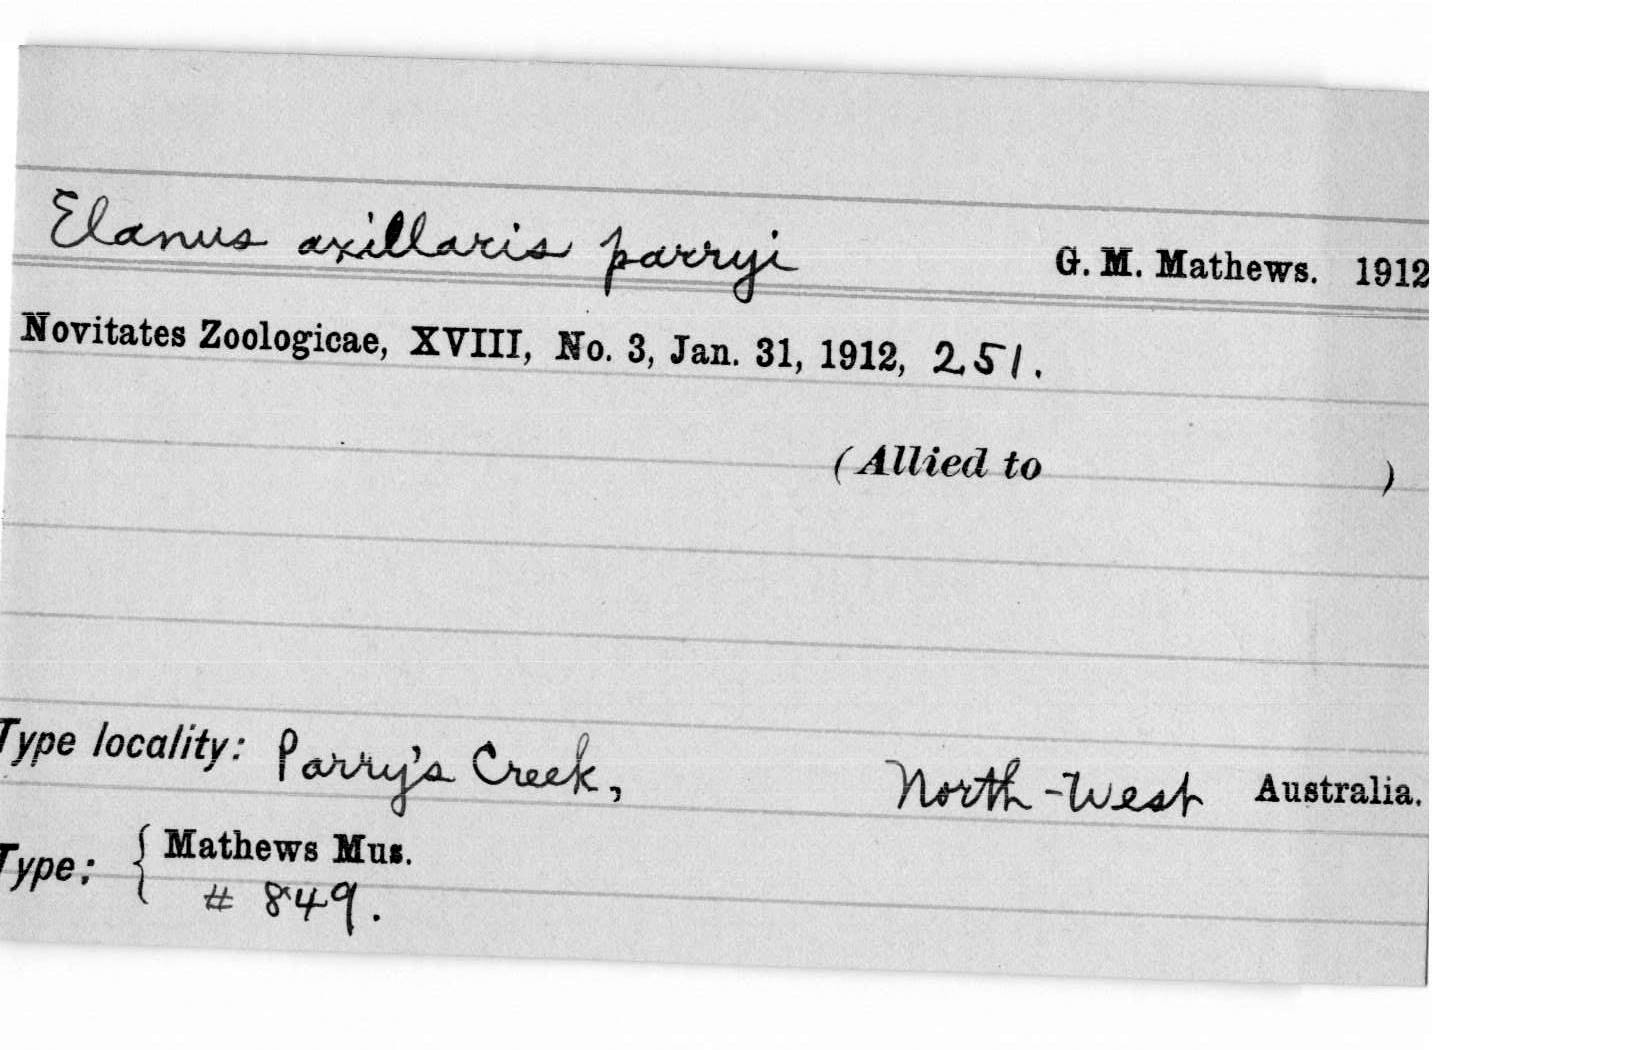 Elanus axillaris parryi G. M. Mathews. 1912
Novitates Zoologicae, XVIII, No. 3, Jan. 31, 1912, 251.
(Allied to )
Type locality: Parry's Creek, North-West Australia.
Type: { Mathews Mus.
# 849.